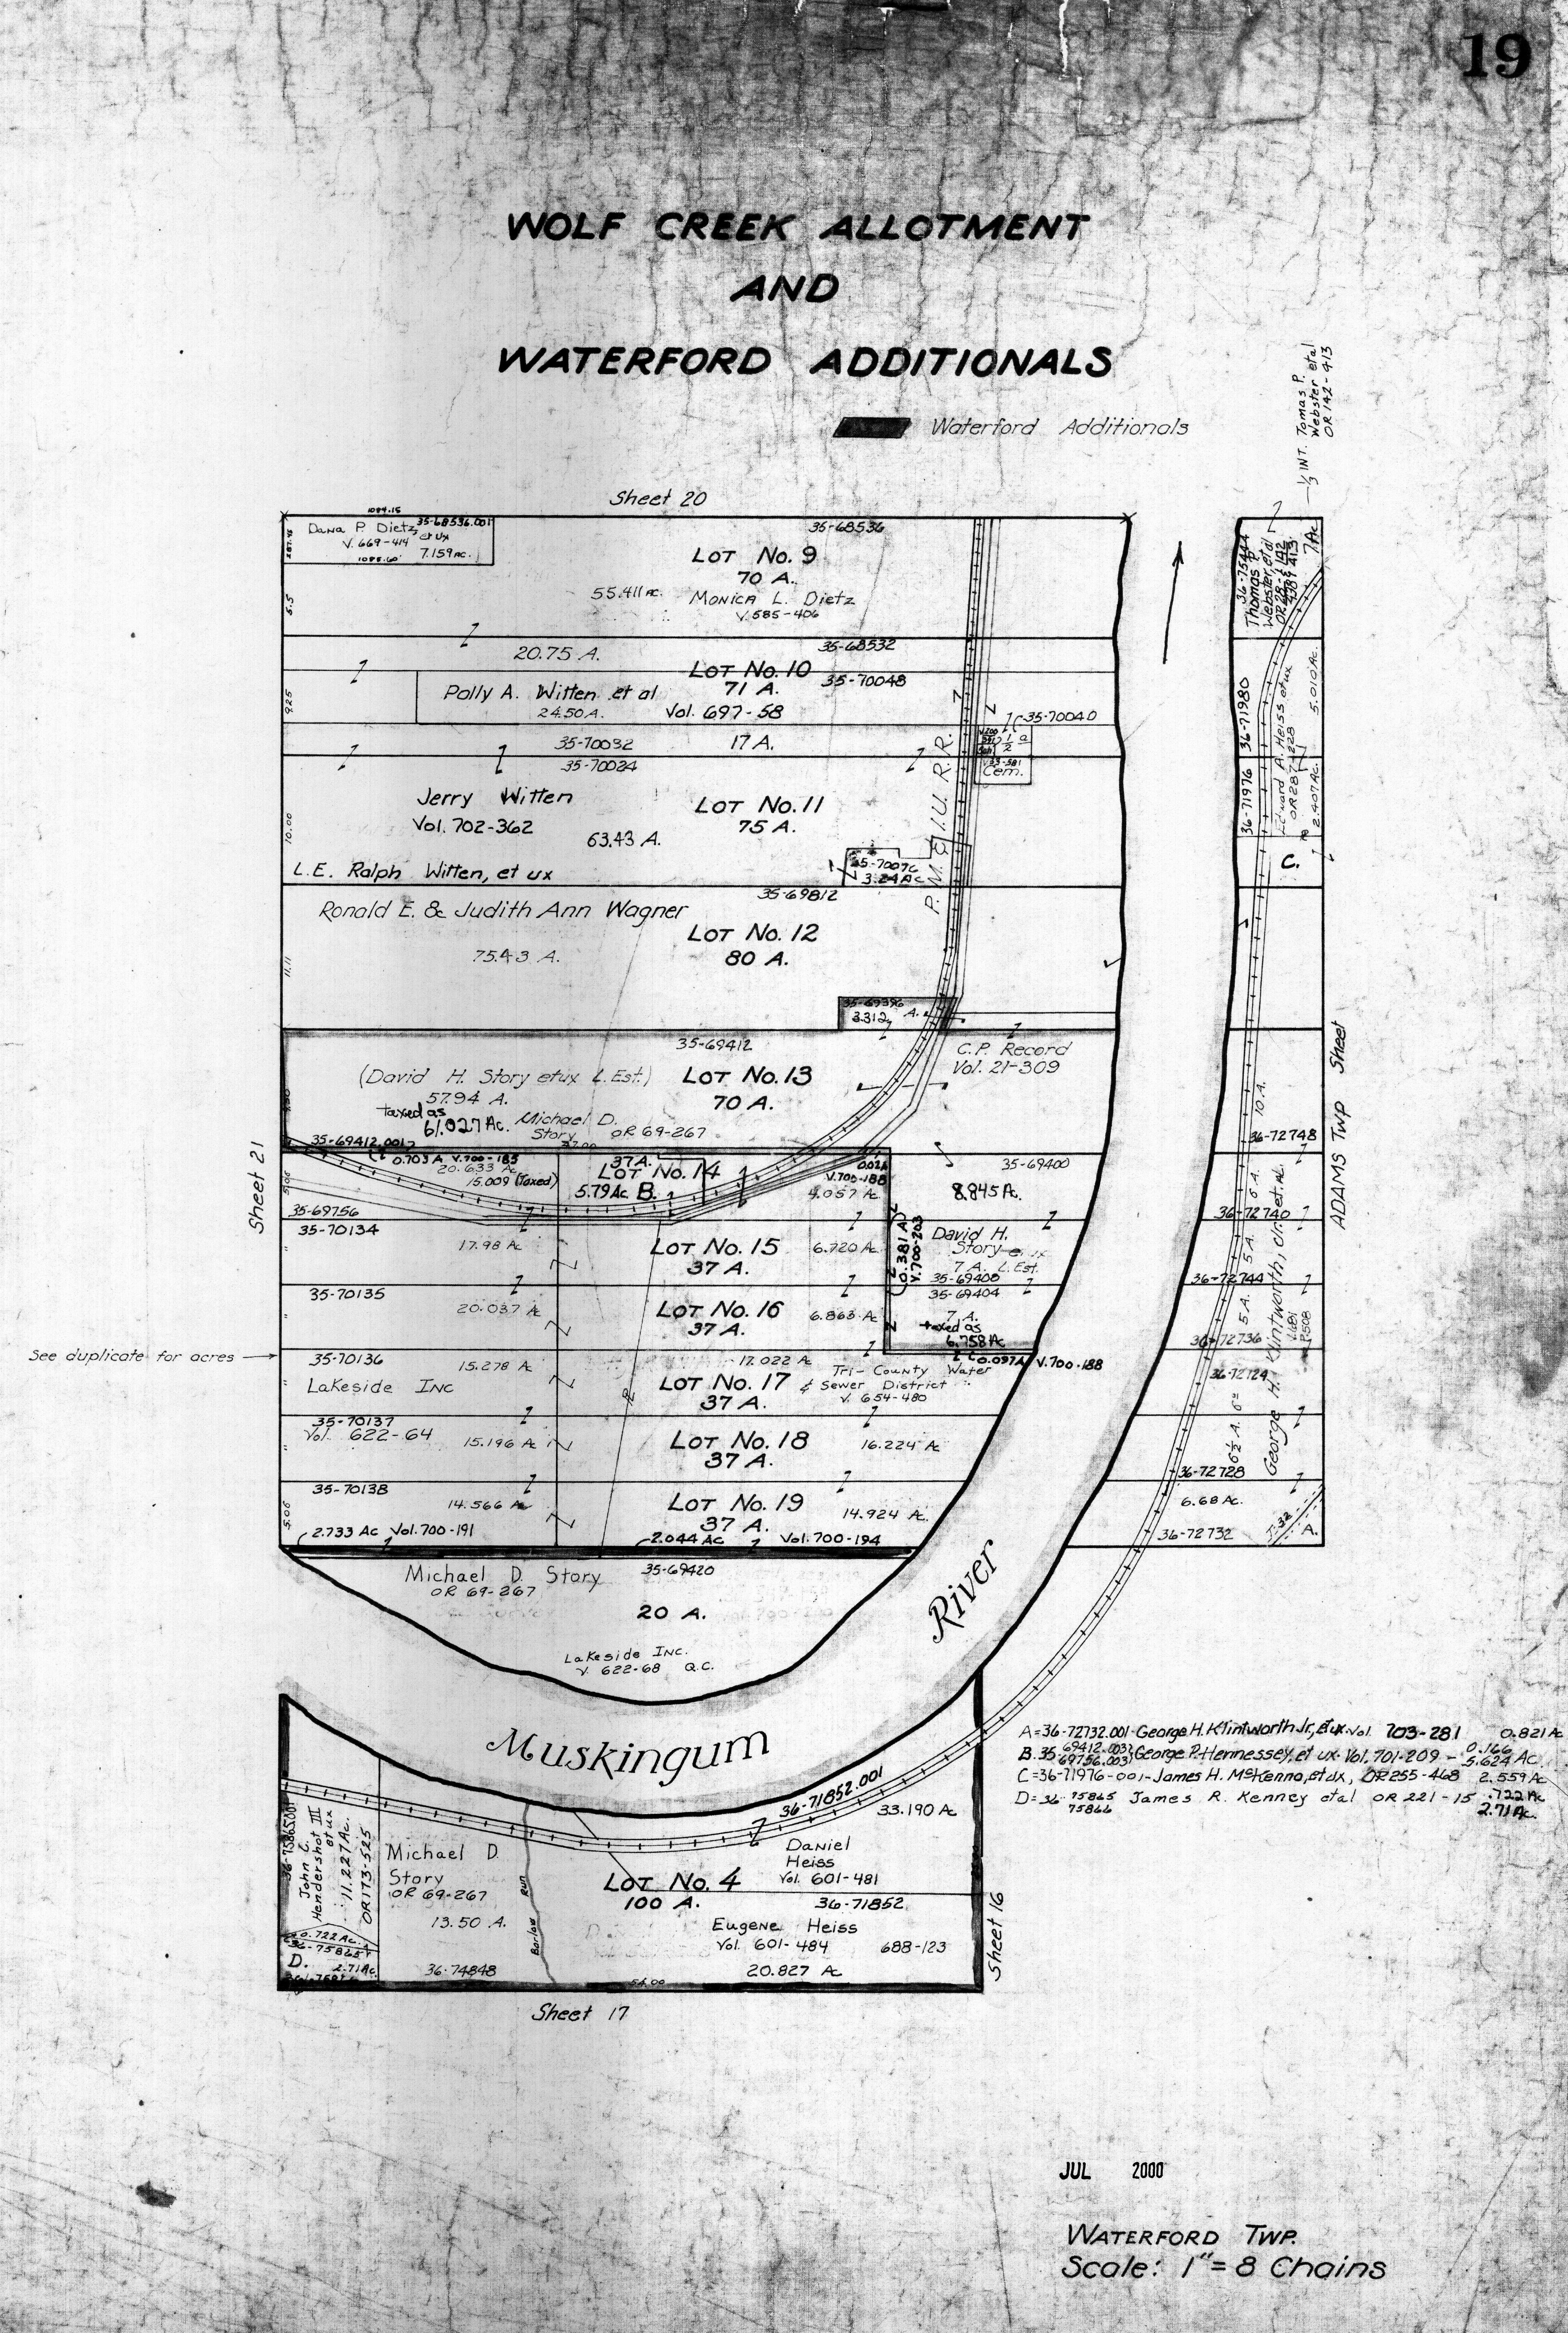 19
WOLF CREEK ALLOTMENT
AND
WATERFORD ADDITIONALS
Waterford Additionals
1/3 INT. Tomas P.
Webster et al
OR 142-413
Sheet 20
1089.15
Dana P. Dietz, et ux
35-68536.001
V. 669-414
7.159 AC.
1088.60'
287.45
35-68536
LOT No. 9
70 A.
55.411 AC.
MONICA L. Dietz
V. 585-406
5.5
20.75 A.
35-68532
LOT No. 10
71 A.
35-70048
Polly A. Witten et al
24.50 A.
Vol. 697-58
9.25
35-70040
35-70032
17 A.
35-70024
1/2 a
Cem.
Jerry Witten
Vol. 702-362
63.43 A.
LOT No. 11
75 A.
10.00
P. M. & I. U. R. R.
L.E. Ralph Witten, et ux
3.24 Ac
35-69812
Ronald E. & Judith Ann Wagner
LOT No. 12
80 A.
75.43 A.
11.11
35-69396
3.312 A.
35-69412
C.P. Record
Vol. 21-309
(David H. Story et ux L. Est.)
57.94 A.
taxed as
61.027 Ac.
LOT No. 13
70 A.
Michael D.
Story
OR 69-267
37.00
35-69412.001
0.703 A V. 700-185
20.633 Ac
15.009 (Taxed)
37 A.
LOT No. 14
5.79 Ac B.
0.024
V. 700-188
4.057 Ac
35-69400
8.845 A.
5.06
35-69756
35-70134
17.98 Ac
LOT No. 15
37 A.
6.720 Ac
0.381 A
V. 700-203
David H.
Story
7 A. L. Est.
35-69400
35-69404
35-70135
20.037 Ac
LOT No. 16
37 A.
6.863 Ac
7 A.
taxed as
6.758 Ac
0.097A V. 700-188
See duplicate for acres
35-70136
15.278 Ac
Lakeside INC
17.022 A
LOT No. 17
37 A.
Tri-County Water
& Sewer District
V. 654-480
35-70137
Vol. 622-64
15.196 Ac
LOT No. 18
37 A.
16.224 Ac
35-70138
14.566 Ac
LOT No. 19
37 A.
14.924 Ac.
5.06
2.733 Ac Vol. 700-191
2.044 AC
Vol. 700-194
Sheet 21
Michael D. Story
OR 69-267
35-69420
20 A.
Lakeside INC.
V. 622-68 Q.C.
Muskingum
River
36-75444
Thomas P
Webster, et al
7 Ac
36-71980
Edward A. Heiss et ux
OR 287-1228
5.010 Ac.
36-71976
2.407 Ac.
C.
10 A.
36-72748
6 A.
36-72740
5 A.
36-72744
5 A.
36-72736
36-72724
6 1/2 A.
36-72728
George H. Klintworth, Jr. et al.
V. 681
P. 508
6.68 Ac.
36-72732
T-32
A.
ADAMS Twp Sheet
A=36-72732.001-George H. Klintworth Jr, et ux. Vol. 703-281 0.821 A
B. 35- 69412.003 69756.003 George P. Hennessey, et ux. Vol. 701-209 - 0.166 5.624 Ac
C=36-71976-001-James H. McKenna, et ux, OR 255-468 2.559 Ac
D=36- 75865 75866 James R. Kenney et al OR 221-15 .722 Ac 2.71 Ac.
36-71852.001
33.190 Ac
36-75865.001
John C.
Hendershot III
et ux
11.227 Ac.
OR 173-525
0.722 Ac.
36-75865
D.
2.71 Ac.
Michael D
Story
OR 69-267
13.50 A.
36-74848
Barlow Run
LOT No. 4
100 A.
Daniel
Heiss
Vol. 601-481
36-71852
Eugene Heiss
Vol. 601-484
688-123
20.827 Ac
54.00
Sheet 16
Sheet 17
JUL 2000
WATERFORD TWP.
Scale: 1"=8 Chains